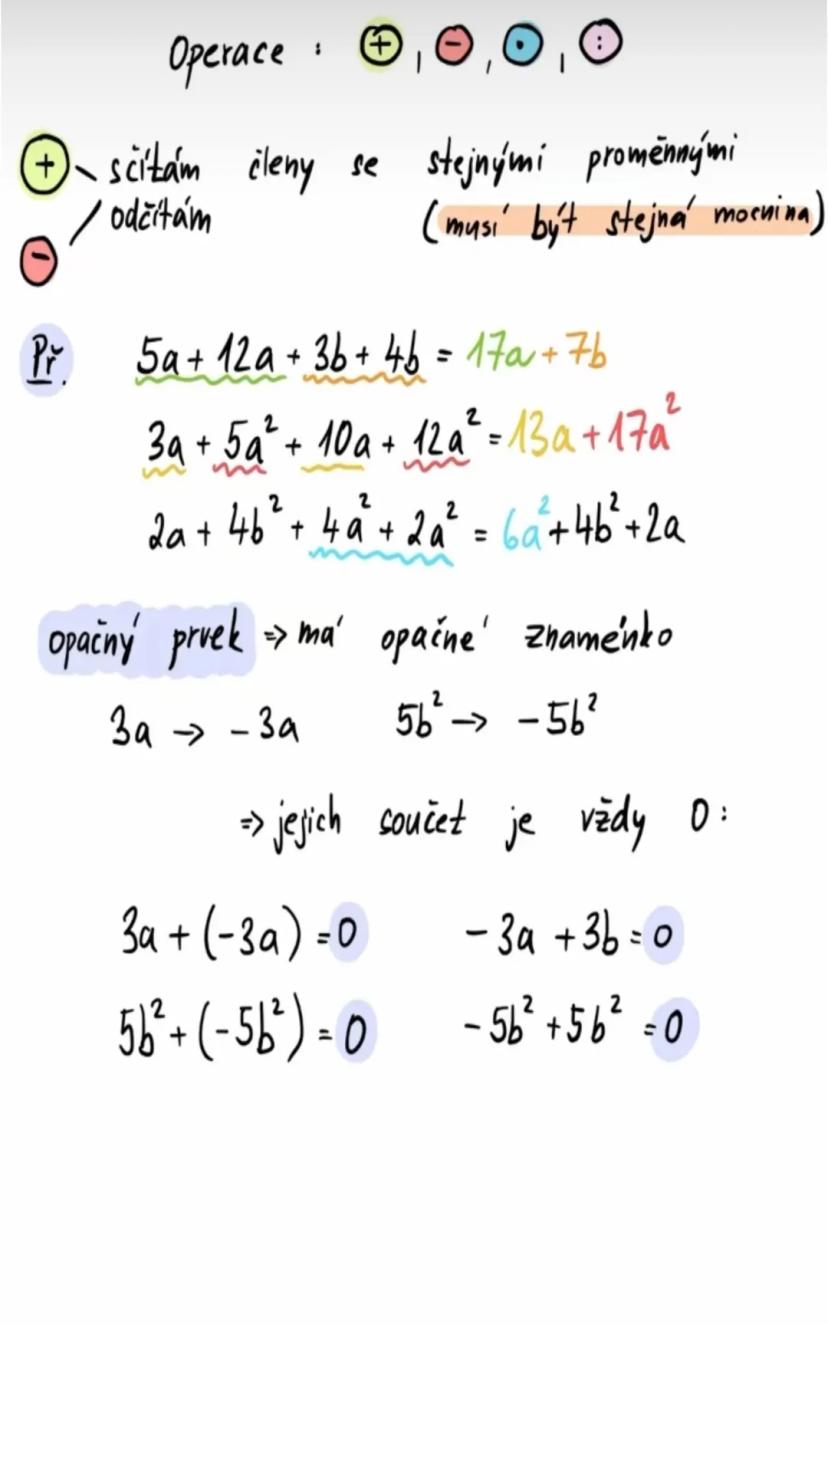 Operace : +, -, •, :
+ sčítám členy se stejnými proměnnými
- odčítám (musí být stejná mocnina)
Př. 5a + 12a + 3b + 4b = 17a + 7b
3a + 5a² + 10a + 12a² = 13a + 17a²
2a + 4b² + 4a² + 2a² = 6a² + 4b² + 2a
opačný prvek ⇒ má opačné znaménko
3a → - 3a 5b² → - 5b²
⇒ jejich součet je vždy 0 :
3a + (-3a) = 0 - 3a + 3b = 0
5b² + (-5b²) = 0 - 5b² + 5b² = 0